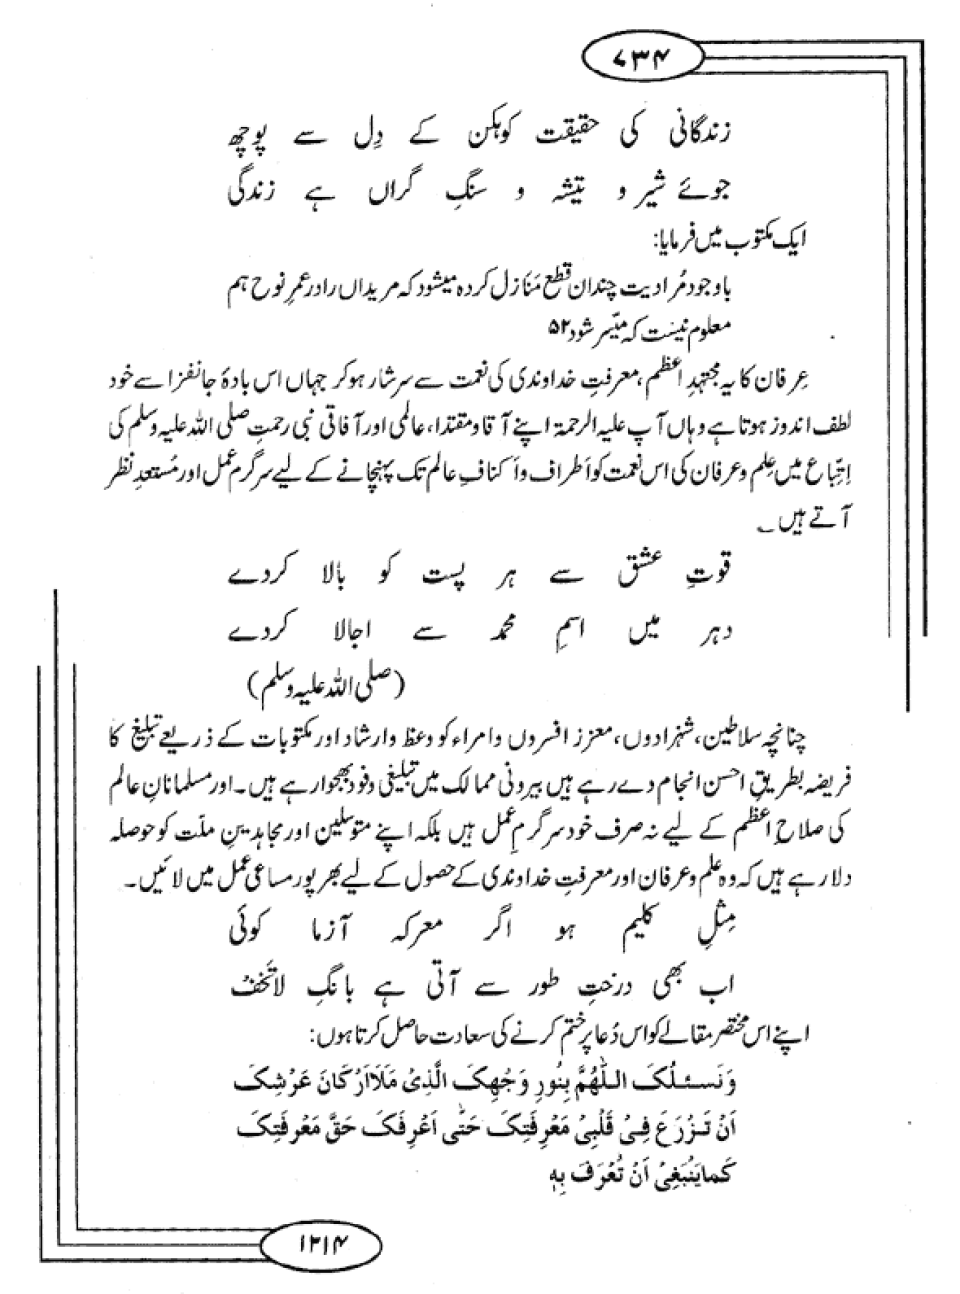 ۷۳۴
زندگانی کی حقیقت کوہکن کے دِل سے پوچھ
جوئے شیر و تیشہ و سنگِ گراں ہے زندگی
ایک مکتوب میں فرمایا:
باوجود مُرادیت چندان قطع مَنَازل کرده میشود که مریداں را در عمرِ نوح ہم
معلوم نیست که میّسر شود ۵۲
عِرفان کا یہ مجتہدِ اعظم، معرفتِ خداوندی کی نعمت سے سرشار ہو کر جہاں اس بادۂ جانفزا سے خود
لطف اندوز ہوتا ہے وہاں آپ علیہ الرحمۃ اپنے آقا و مقتدا، عالمی اور آفاقی نبی رحمتِ صلی اللہ علیہ وسلم کی
اِتّباع میں عِلم و عرفان کی اس نعمت کو اَطراف و اَکنافِ عالم تک پہنچانے کے لیے سرگرم عمل اور مُستعد نظر
آتے ہیں ۔
قوتِ عشق سے ہر پست کو بالا کردے
دہر میں اسمِ محمد سے اجالا کردے
(صلی اللہ علیہ وسلم)
چنانچہ سلاطین، شہزادوں، معزز افسروں و امراء کو وعظ و ارشاد اور مکتوبات کے ذریعے تبلیغ کا
فریضہ بطریقِ احسن انجام دے رہے ہیں بیرونی ممالک میں تبلیغی وفود بھجوا رہے ہیں۔ اور مسلمانانِ عالم
کی صلاحِ اعظم کے لیے نہ صرف خود سرگرمِ عمل ہیں بلکہ اپنے متوسلین اور مجاہدینِ ملّت کو حوصلہ
دلا رہے ہیں کہ وہ علم و عرفان اور معرفتِ خداوندی کے حصول کے لیے بھرپور مساعی عمل میں لائیں۔
مِثلِ کلیم ہو اگر معرکہ آزما کوئی
اب بھی درختِ طور سے آتی ہے بانگِ لاتَخَفْ
اپنے اس مختصر مقالے کو اس دُعا پر ختم کرنے کی سعادت حاصل کرتا ہوں:
وَنَسـئـلُکَ اللّٰھُمَّ بِنُورِ وَجْھِکَ الَّذِیْ مَلَاَ اَرْکَانَ عَرْشِکَ
اَنْ تَـزْرَعَ فِـیْ قَلْبِیْ مَعْرِفَتِکَ حَتّٰی اَعْرِفَکَ حَقَّ مَعْرِفَتِکَ
کَمایَنْبَغِیْ اَنْ تُعْرَفَ بِہٖ
۱۲۱۴